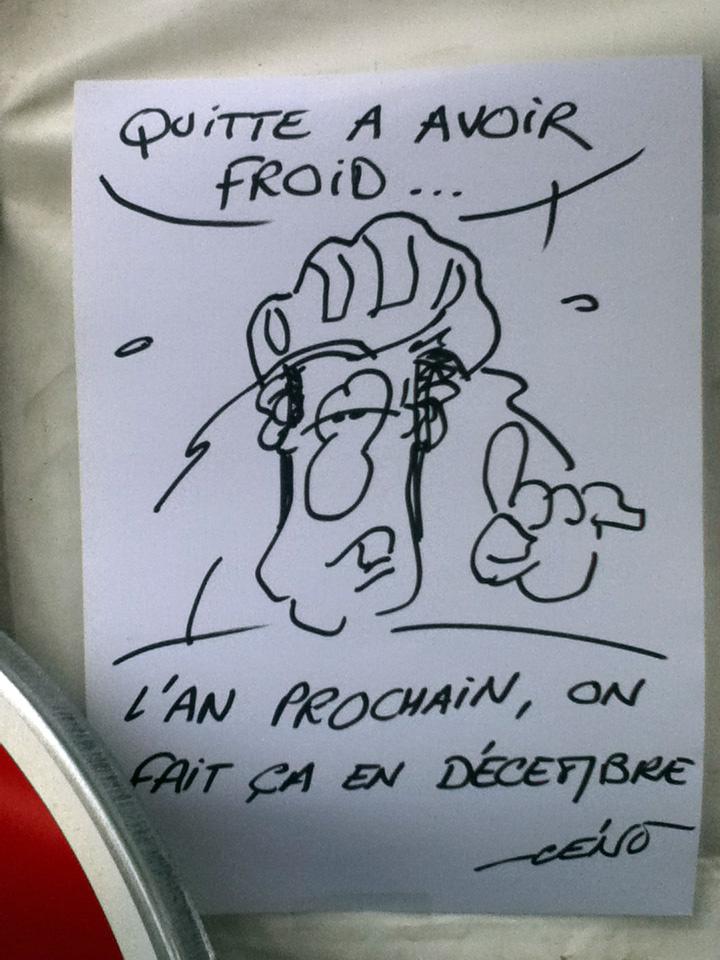 QUITTE A AVOIR
FROID...
L'AN PROCHAIN, ON
FAIT ÇA EN DÉCEMBRE
CÉNO